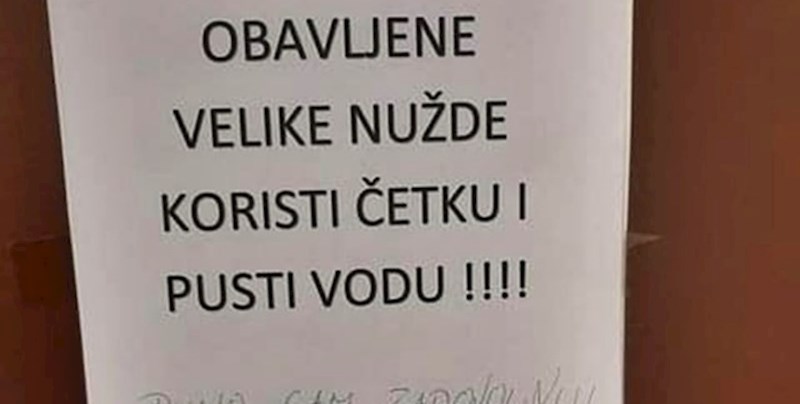 OBAVLJENE
VELIKE NUŽDE
KORISTI ČETKU I
PUSTI VODU !!!!
SAM